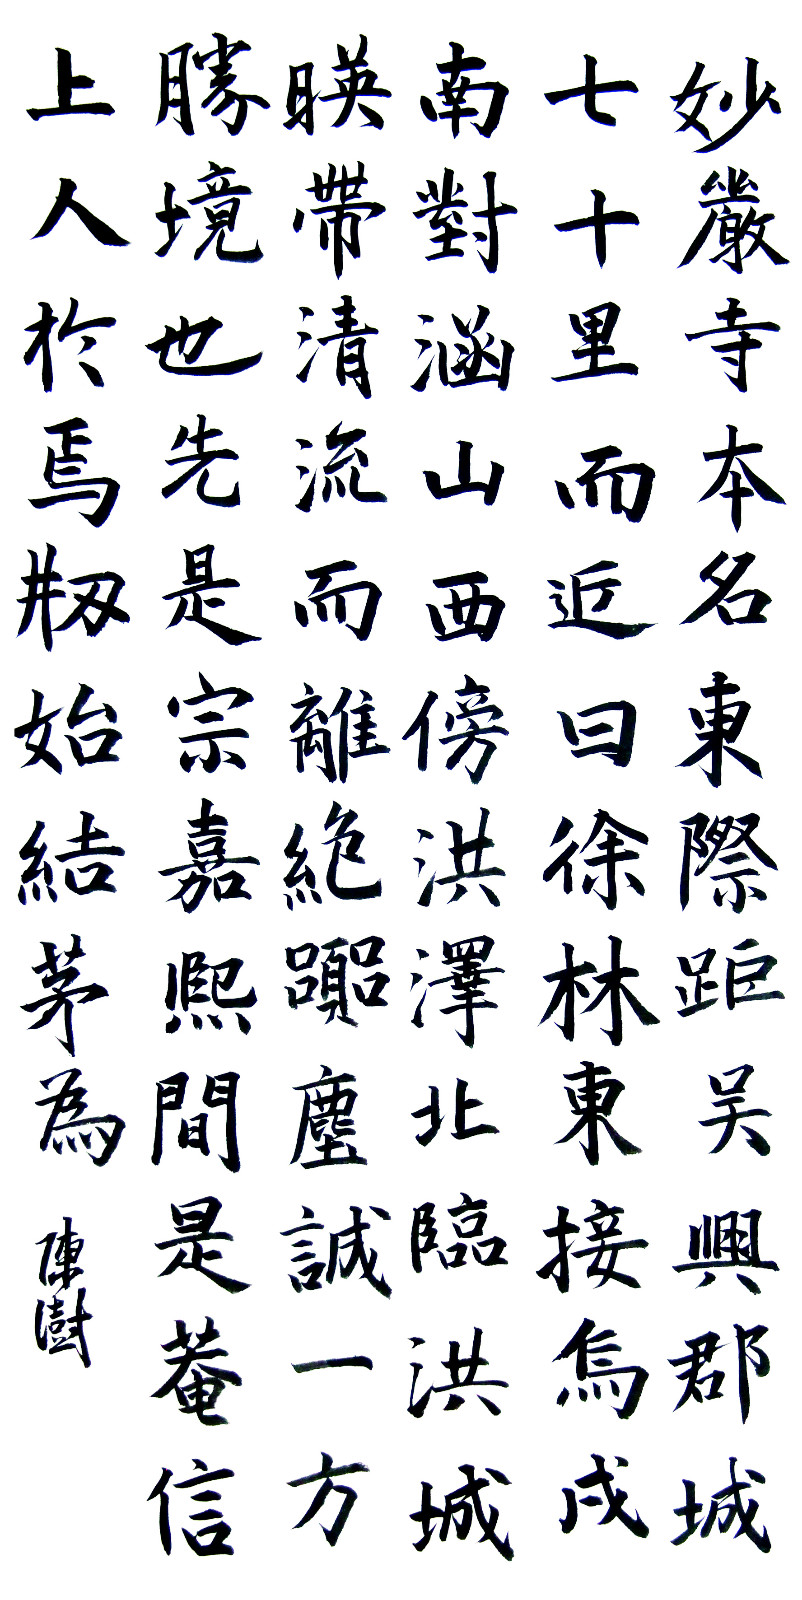 妙嚴寺本名東際距吳興郡城
七十里而近曰徐林東接烏戍
南對涵山西傍洪澤北臨洪城
暎帶清流而離絶囂塵誠一方
勝境也先是宗嘉熙間是菴信
上人於焉剏始結茅為
陳澍